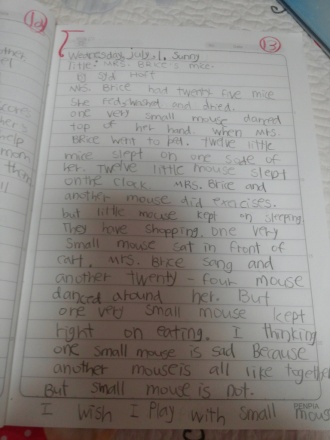 13
Wednesday, July, 1, Sunny
title: MRS. Brice's mice
Syd Hoff
Mrs. Brice had twenty five mice
She fed, washed and dried.
one very small mouse danced
top of her hand when Mrs.
Brice went to bed. Twelve little
mice slept on one side of
her. Twelve little mouse slept
on the clock. MRS. Brice and
another mouse did exercises.
but little mouse kept on sleeping.
They have shopping. one very
small mouse sat in front of
cart. Mrs. Brice sang and
another twenty-four mouse
danced around her. But
one very small mouse kept
right on eating. I thinking
one small mouse is sad Because
another mouse is all like together
But small mouse is not.
BENPIA
I wish I Play with small mouse